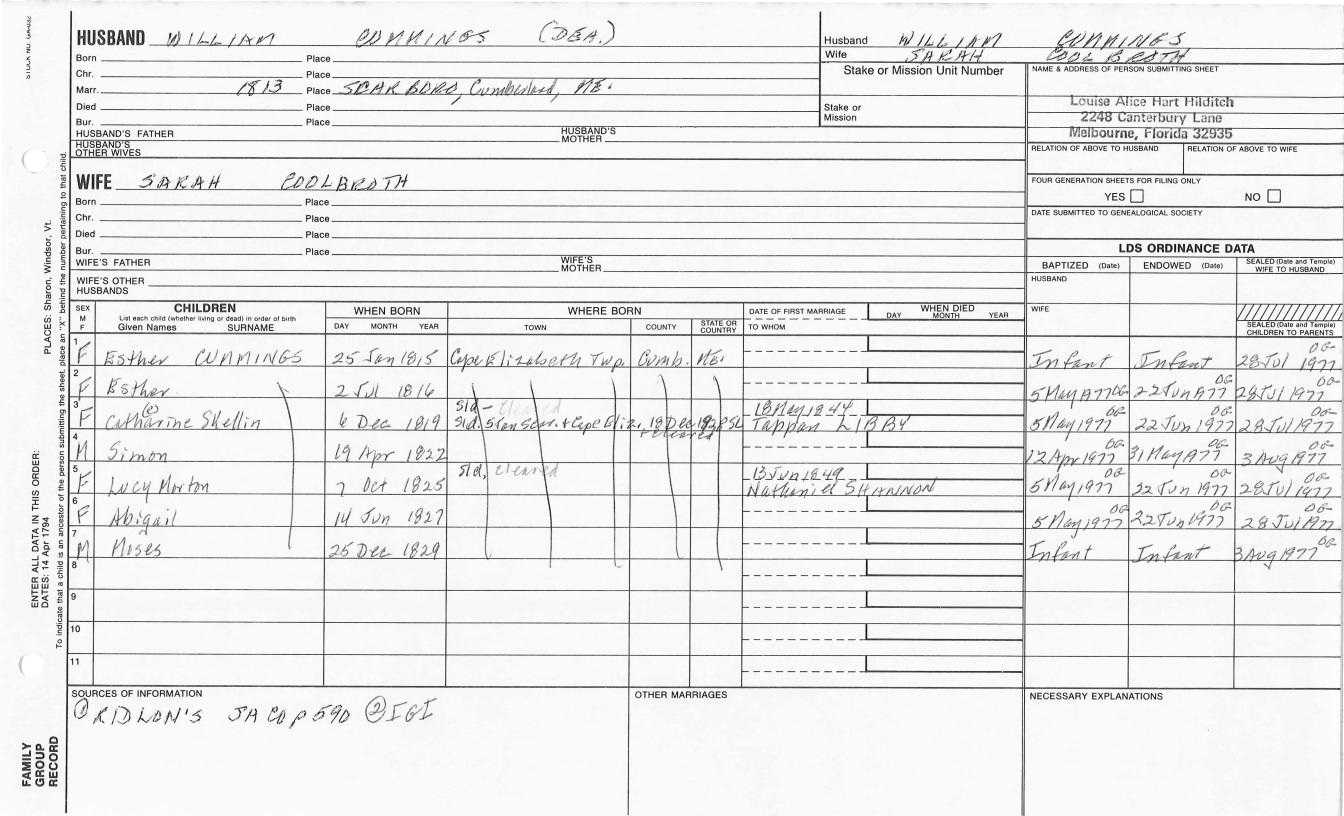 STOCK NO.
HUSBAND WILLIAM CUMMINGS (DEA.)
Born Place
Chr. Place
Marr. 1813 Place SCARBORO, Cumberland, ME.
Died Place
Bur. Place
HUSBAND'S FATHER HUSBAND'S MOTHER
HUSBAND'S OTHER WIVES
Husband WILLIAM CUMMINGS
Wife SARAH COOLBROTH
Stake or Mission Unit Number
Stake or Mission
NAME & ADDRESS OF PERSON SUBMITTING SHEET
Louise Alice Hart Hilditch
2248 Canterbury Lane
Melbourne, Florida 32935
RELATION OF ABOVE TO HUSBAND RELATION OF ABOVE TO WIFE
FOUR GENERATION SHEETS FOR FILING ONLY
YES NO
DATE SUBMITTED TO GENEALOGICAL SOCIETY
WIFE SARAH COOLBROTH
Born Place
Chr. Place
Died Place
Bur. Place
WIFE'S FATHER WIFE'S MOTHER
WIFE'S OTHER HUSBANDS
LDS ORDINANCE DATA
BAPTIZED (Date) ENDOWED (Date) SEALED (Date and Temple) WIFE TO HUSBAND
HUSBAND
WIFE
SEALED (Date and Temple) CHILDREN TO PARENTS
SEX M F
CHILDREN
List each child (whether living or dead) in order of birth
Given Names SURNAME
WHEN BORN
DAY MONTH YEAR
WHERE BORN
TOWN COUNTY STATE OR COUNTRY
DATE OF FIRST MARRIAGE
TO WHOM
WHEN DIED
DAY MONTH YEAR
1 F Esther CUMMINGS 25 Jan 1815 Cape Elizabeth Twp. Cumb. ME. Infant Infant 28 Jul 1977 OG
2 F Esther 2 Jul 1816 5 May 1977 OG 22 Jun 1977 OG 28 Jul 1977 OG
3 F Catharine (e) Skellin 6 Dec 1819 Sld - cleared 18 May 1844 Tappan LIBBY 5 May 1977 OG 22 Jun 1977 OG 28 Jul 1977 OG
cleared
4 M Simon 19 Apr 1822 12 Apr 1977 OG 31 May 1977 OG 3 Aug 1977 OG
5 F Lucy Morton 7 Oct 1825 Sld, cleared 13 Jun 1849 Nathaniel SHANNON 5 May 1977 OG 22 Jun 1977 OG 28 Jul 1977 OG
6 F Abigail 14 Jun 1827 5 May 1977 OG 22 Jun 1977 OG 28 Jul 1977 OG
7 M Moses 25 Dec 1829 Infant Infant 3 Aug 1977 OG
8
9
10
11
SOURCES OF INFORMATION
① RIDLON'S SACO p 590 ② IGI
OTHER MARRIAGES
NECESSARY EXPLANATIONS
FAMILY GROUP RECORD
ENTER ALL DATA IN THIS ORDER:
DATES: 14 Apr 1794
PLACES: Sharon, Windsor, Vt.
To indicate that a child is an ancestor of the person submitting the sheet, place an "X" behind the number pertaining to that child.